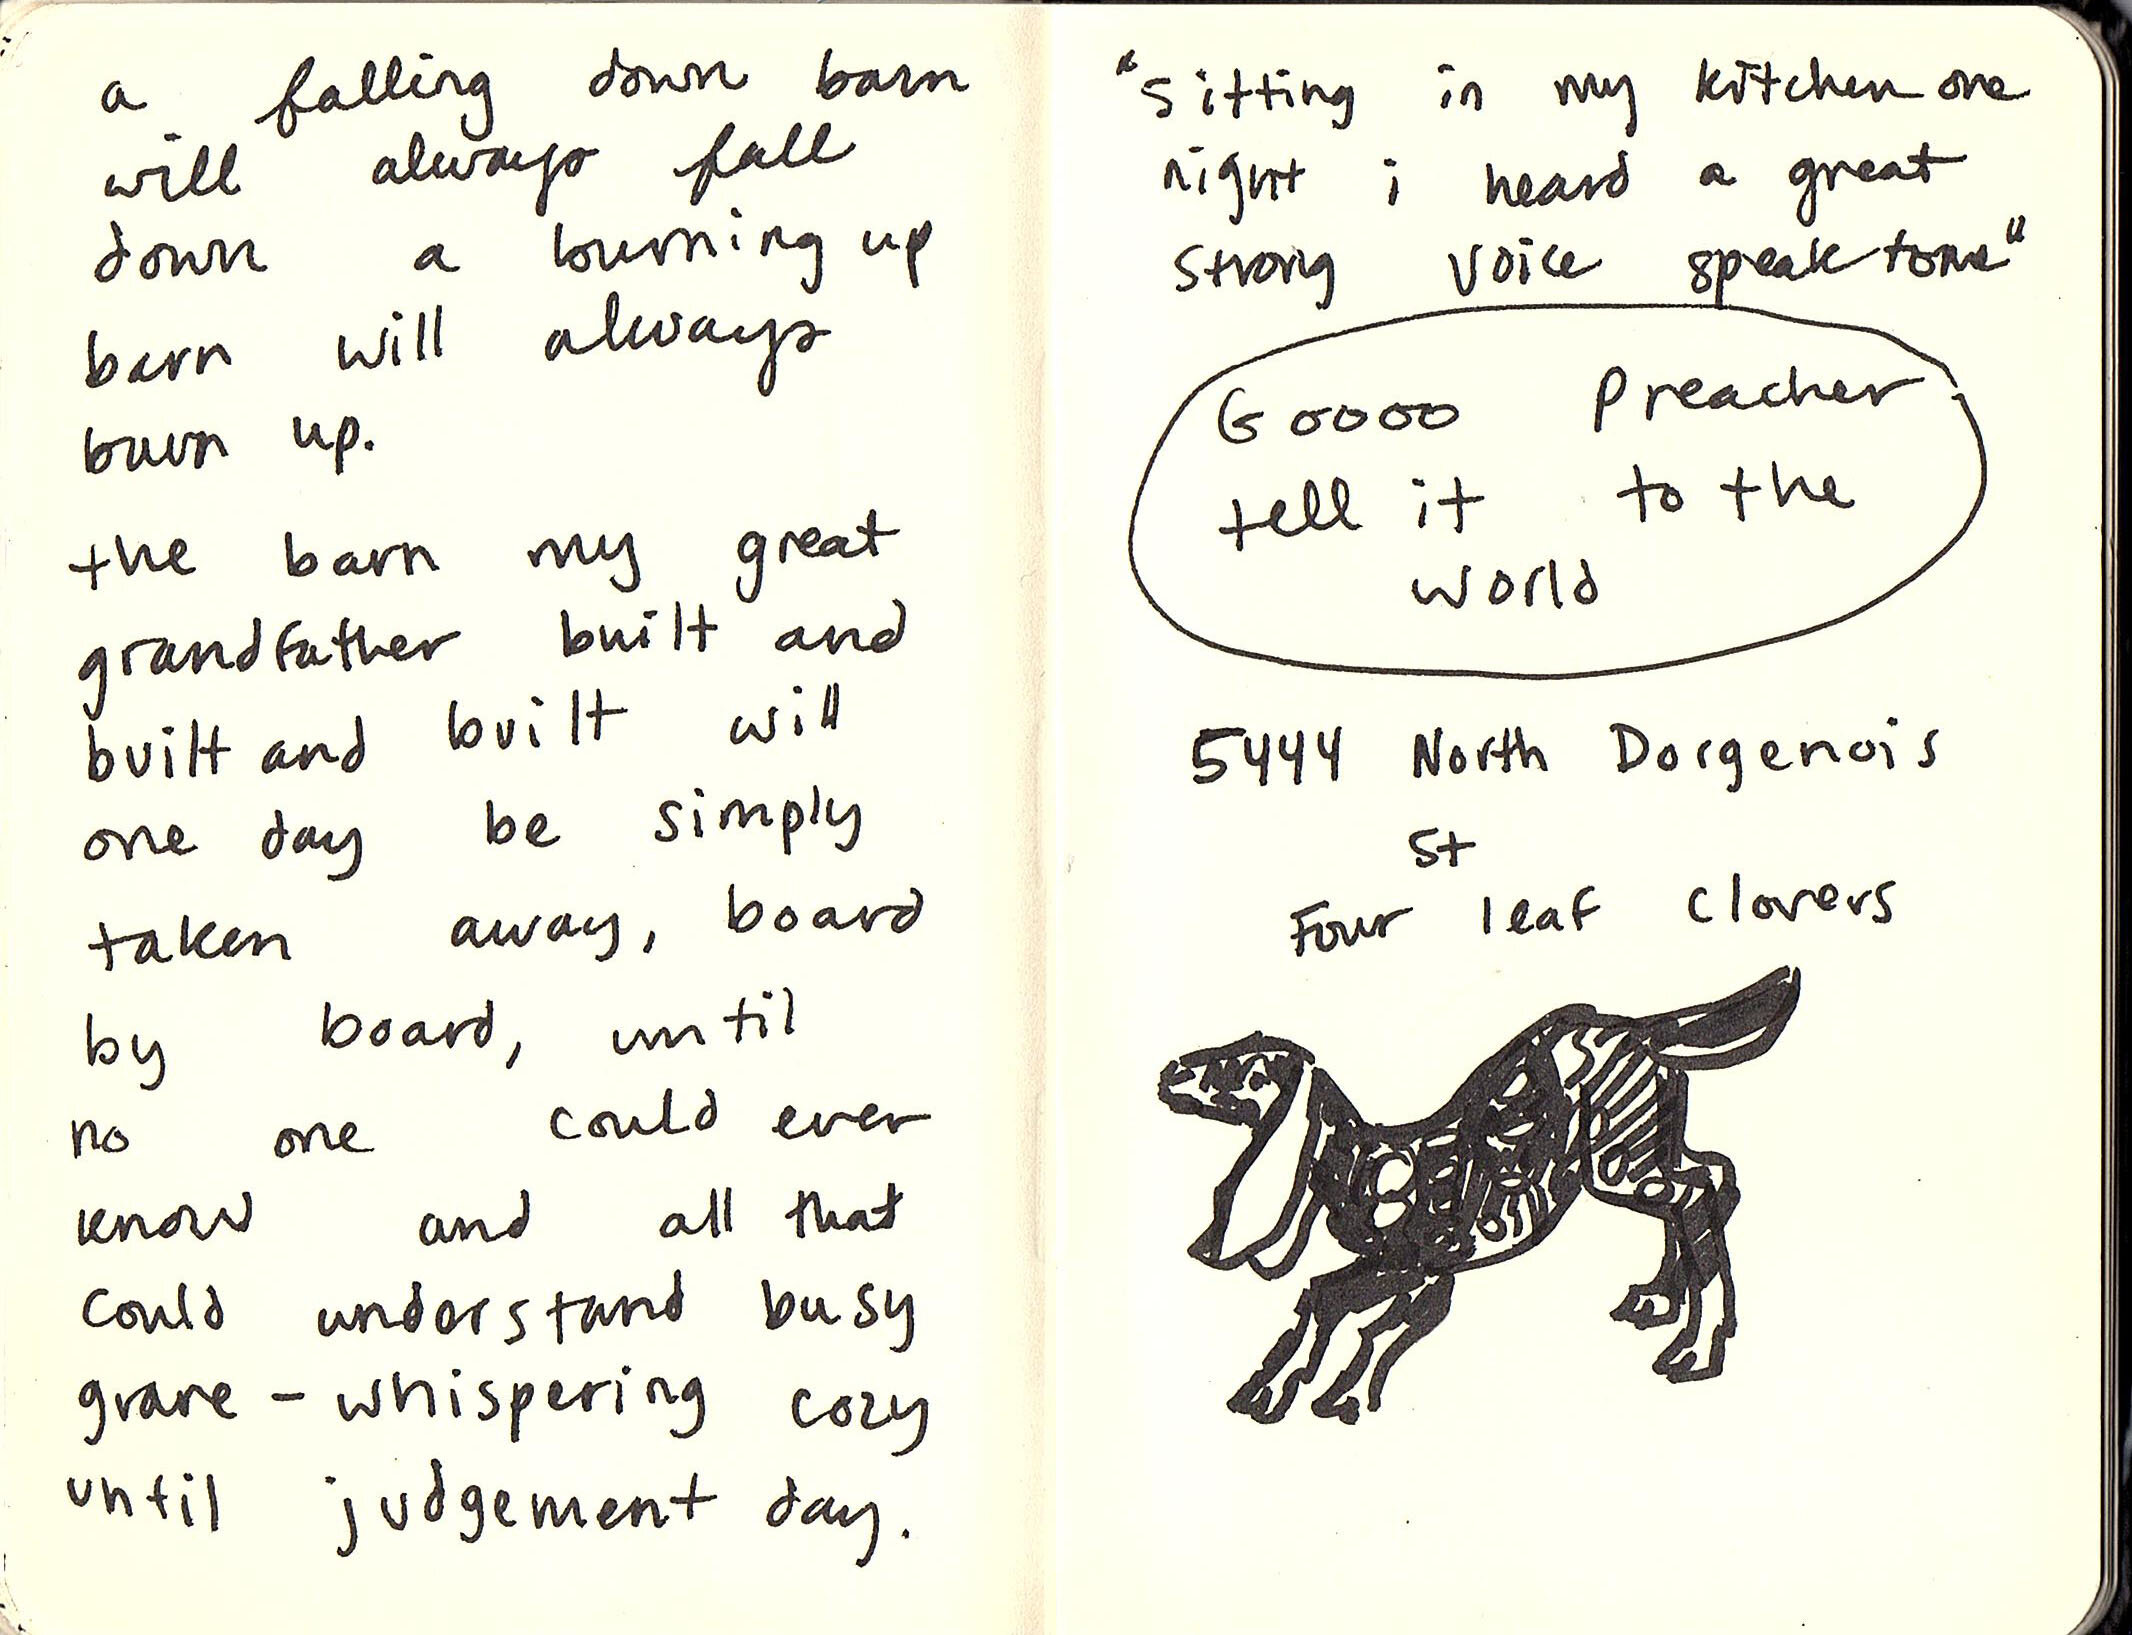 a falling down barn
will always fall
down a burning up
barn will always
burn up.
the barn my great
grandfather built and
built and built will
one day be simply
taken away, board
by board, until
no one could ever
know and all that
could understand busy
grave - whispering cozy
until judgement day.
"sitting in my kitchen one
night i heard a great
strong voice speak to me"
Goooo Preacher
tell it to the
world
5444 North Dorgenois
St
Four leaf clovers